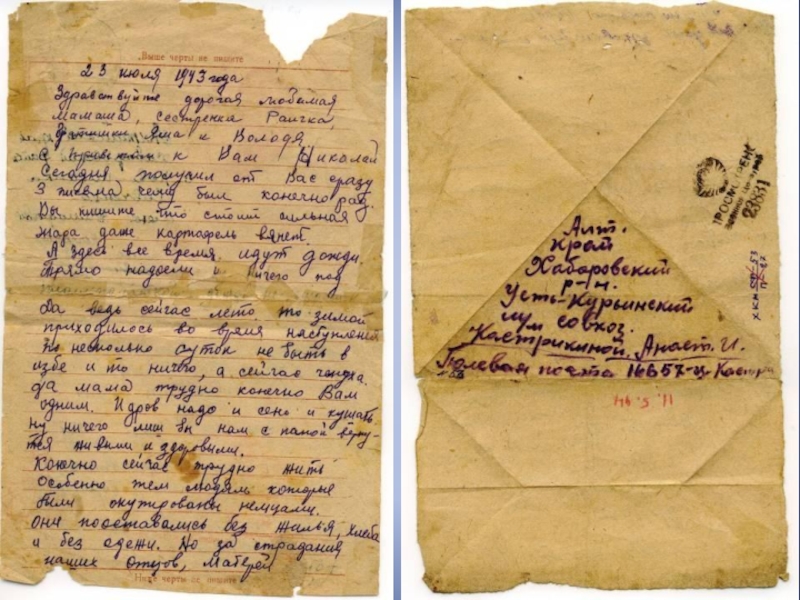 Выше черты не пишите
23 июля 1943 года
Здравствуйте дорогая любимая
мамаша, сестренка Раичка,
братишки Яша и Володя
С приветом к Вам Николай
Сегодня получил от Вас сразу
3 письма чему был конечно рад.
Вы пишите что стоит сильная
жара даже картофель вянет.
А здесь все время идут дожди.
Прямо надоели и ничего под
Да ведь сейчас лето, то зимой
приходилось во время наступлений
по несколько суток не быть в
избе и то ничего, а сейчас чепуха.
да мама трудно конечно Вам
одним. И дров надо и сено и кушать
ну ничего лиш бы нам с папой верну-
тся живыми и здоровыми.
Конечно сейчас трудно жить
особенно тем людям которые
были окупированы немцами.
они пооставались без жилья, хлеба
и без одежи. Но за страдания
наших отцов, матерей
Ниже черты не пишите
Алт.
край
Хабаровский
р-н.
Усть-Курьинский
совхоз.
Кастрикиной. Анаст. И.
Полевая почта 16657-ц Кастри
ПРОСМОТРЕНО
23831
11. 5. 44